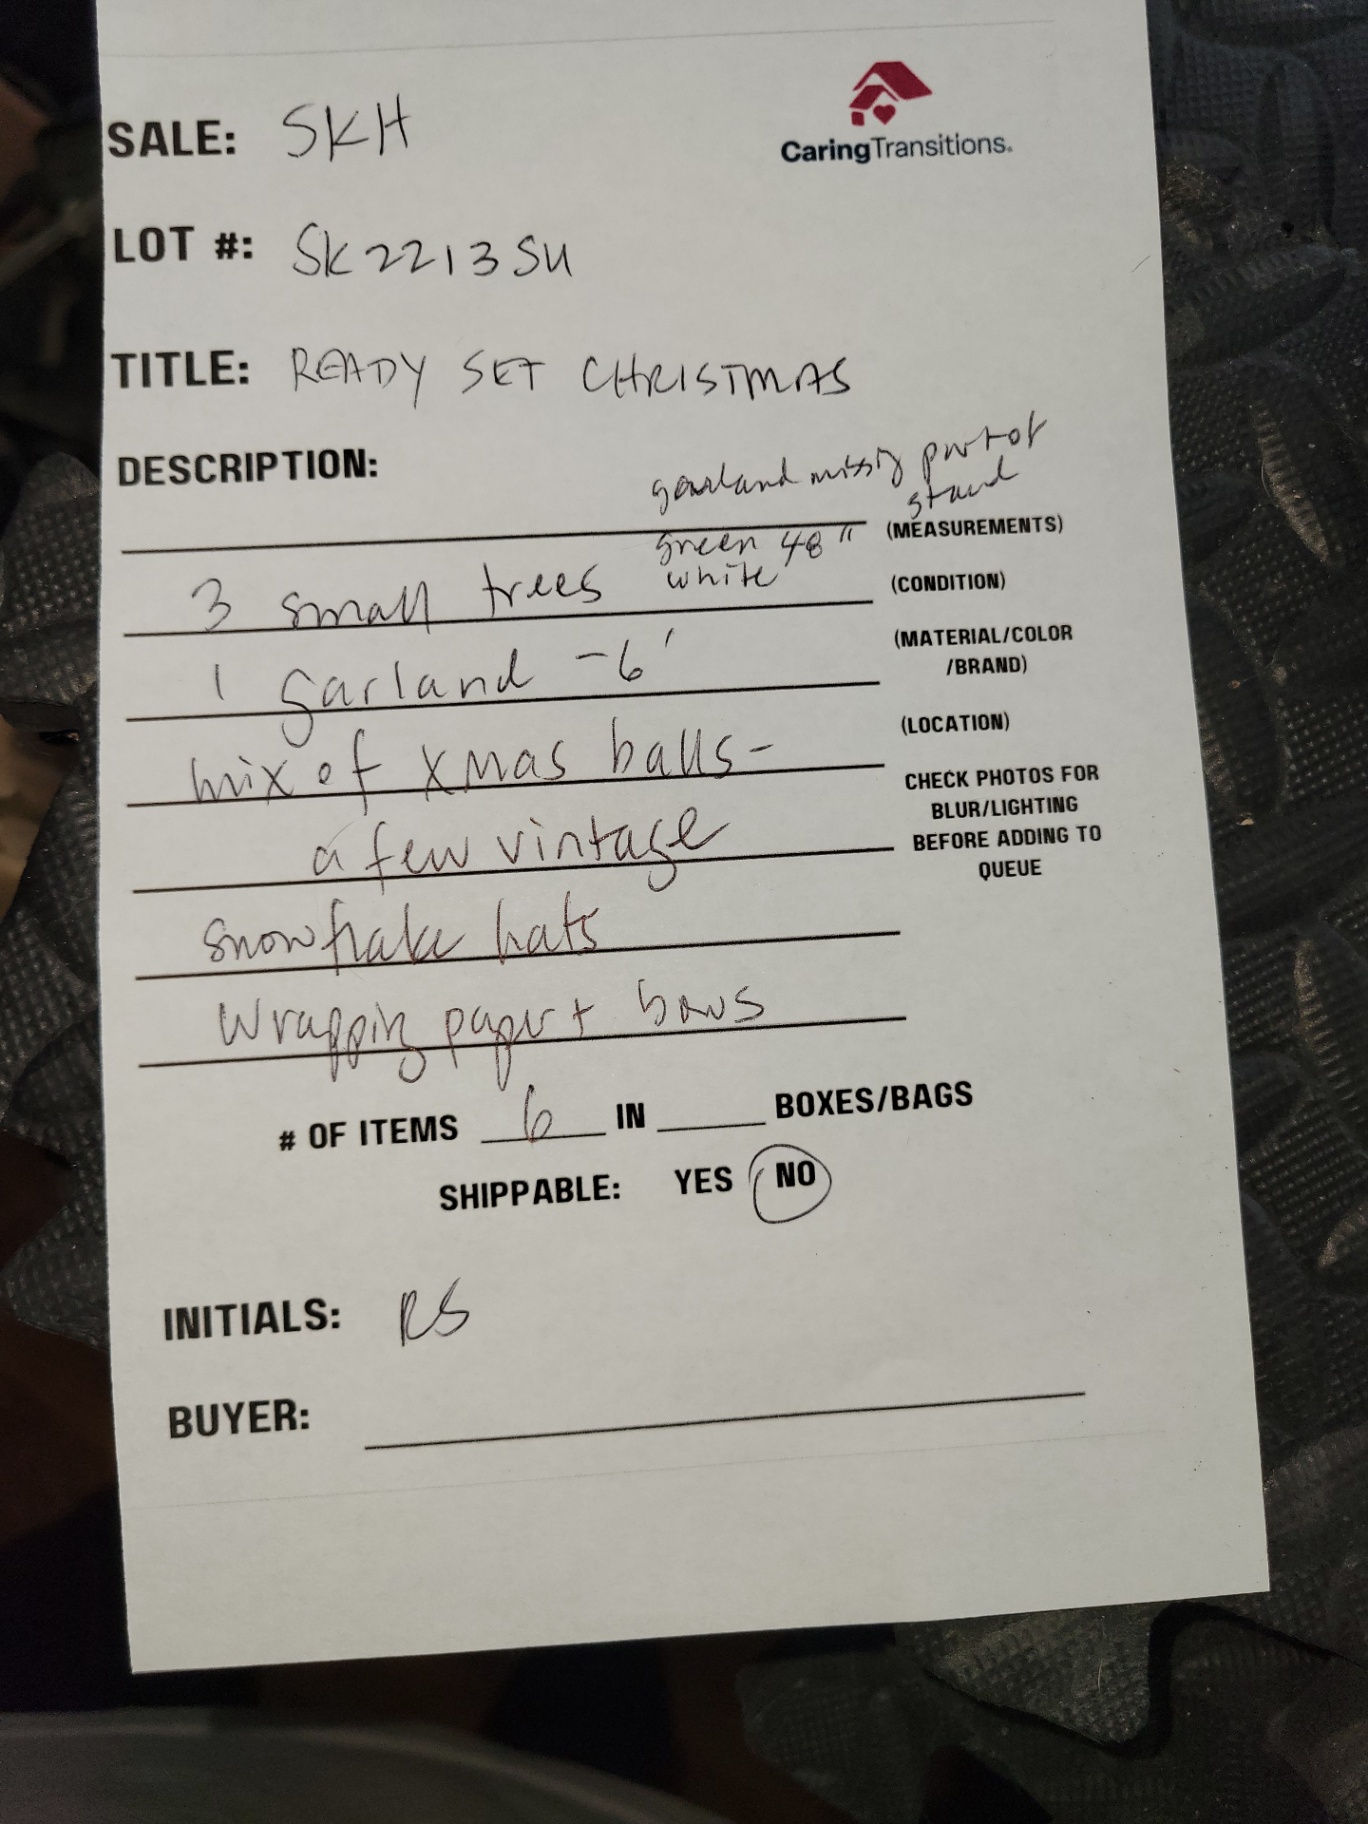 CaringTransitions.
SALE: SKH
LOT #: SK2213SU
TITLE: READY SET CHRISTMAS
DESCRIPTION:
garland missing part of
stand
green 48"
white
(MEASUREMENTS)
3 small trees
(CONDITION)
1 garland - 6'
(MATERIAL/COLOR
/BRAND)
mix of xmas balls-
(LOCATION)
a few vintage
CHECK PHOTOS FOR
BLUR/LIGHTING
BEFORE ADDING TO
QUEUE
snowflake hats
Wrapping paper + bows
# OF ITEMS 6 IN BOXES/BAGS
SHIPPABLE: YES NO
INITIALS: RS
BUYER: